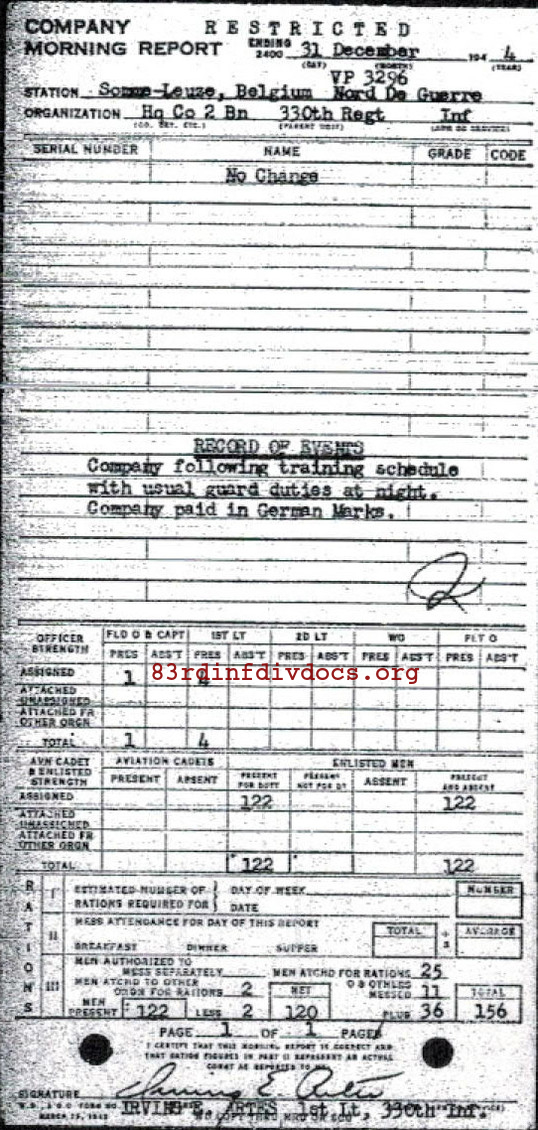 COMPANY RESTRICTED
MORNING REPORT ENDING 2400 31 December 194 4
(DAY) (MONTH) (YEAR)
VP 3296
STATION Somme-Leuze, Belgium Nord De Guerre
ORGANIZATION Hq Co 2 Bn 330th Regt Inf
(CO. BTY. ETC.) (PARENT UNIT) (ARM OR SERVICE)
SERIAL NUMBER NAME GRADE CODE
No Change
RECORD OF EVENTS
Company following training schedule
with usual guard duties at night.
Company paid in German Marks.
OFFICER STRENGTH FLD O & CAPT 1ST LT 2D LT WO FLT O
PRES ABS'T PRES ABS'T PRES ABS'T PRES ABS'T PRES ABS'T
ASSIGNED 1 4
83rdinfdivdocs.org
ATTACHED UNASSIGNED
ATTACHED FR OTHER ORGN
TOTAL 1 4
AVN CADET & ENLISTED STRENGTH AVIATION CADETS ENLISTED MEN
PRESENT ABSENT PRESENT FOR DUTY PRESENT NOT FOR DY ABSENT PRESENT AND ABSENT
ASSIGNED 122 122
ATTACHED UNASSIGNED
ATTACHED FR OTHER ORGN
TOTAL 122 122
RATIONS
I ESTIMATED NUMBER OF RATIONS REQUIRED FOR DAY OF WEEK DATE NUMBER
II MESS ATTENDANCE FOR DAY OF THIS REPORT TOTAL ÷ 3 AVERAGE
BREAKFAST DINNER SUPPER
III MEN AUTHORIZED TO MESS SEPARATELY MEN ATCHD FOR RATIONS 25
MEN ATCHD TO OTHER ORGN FOR RATIONS 2 NET O & OTHERS MESSED 11 TOTAL
MEN PRESENT 122 LESS 2 120 PLUS 36 156
PAGE 1 OF 1 PAGES
I CERTIFY THAT THIS MORNING REPORT IS CORRECT AND
THAT RATION FIGURES IN PART II REPRESENT AN ACTUAL
COUNT AS REPORTED TO ME
SIGNATURE Irving E. Artes
IRVING E. ARTES 1st Lt 330th Inf.
W.D., A.G.O. FORM NO.
MARCH 15, 1943